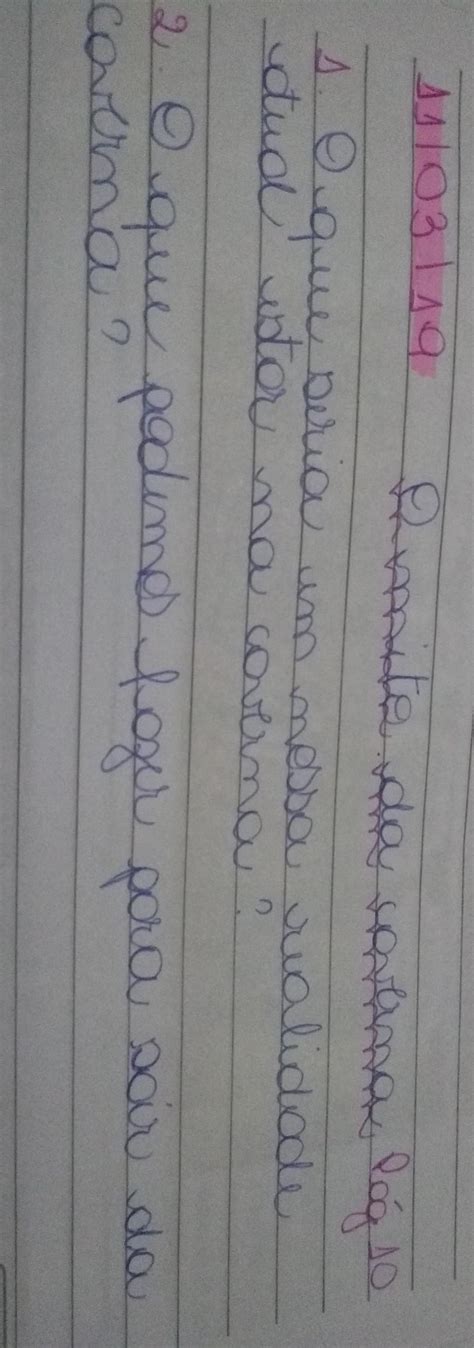 11/03/19 O mito da caverna Pág 10
1. O que seria em nossa realidade
atual estar na caverna?
2. O que podemos fazer para sair da
caverna?